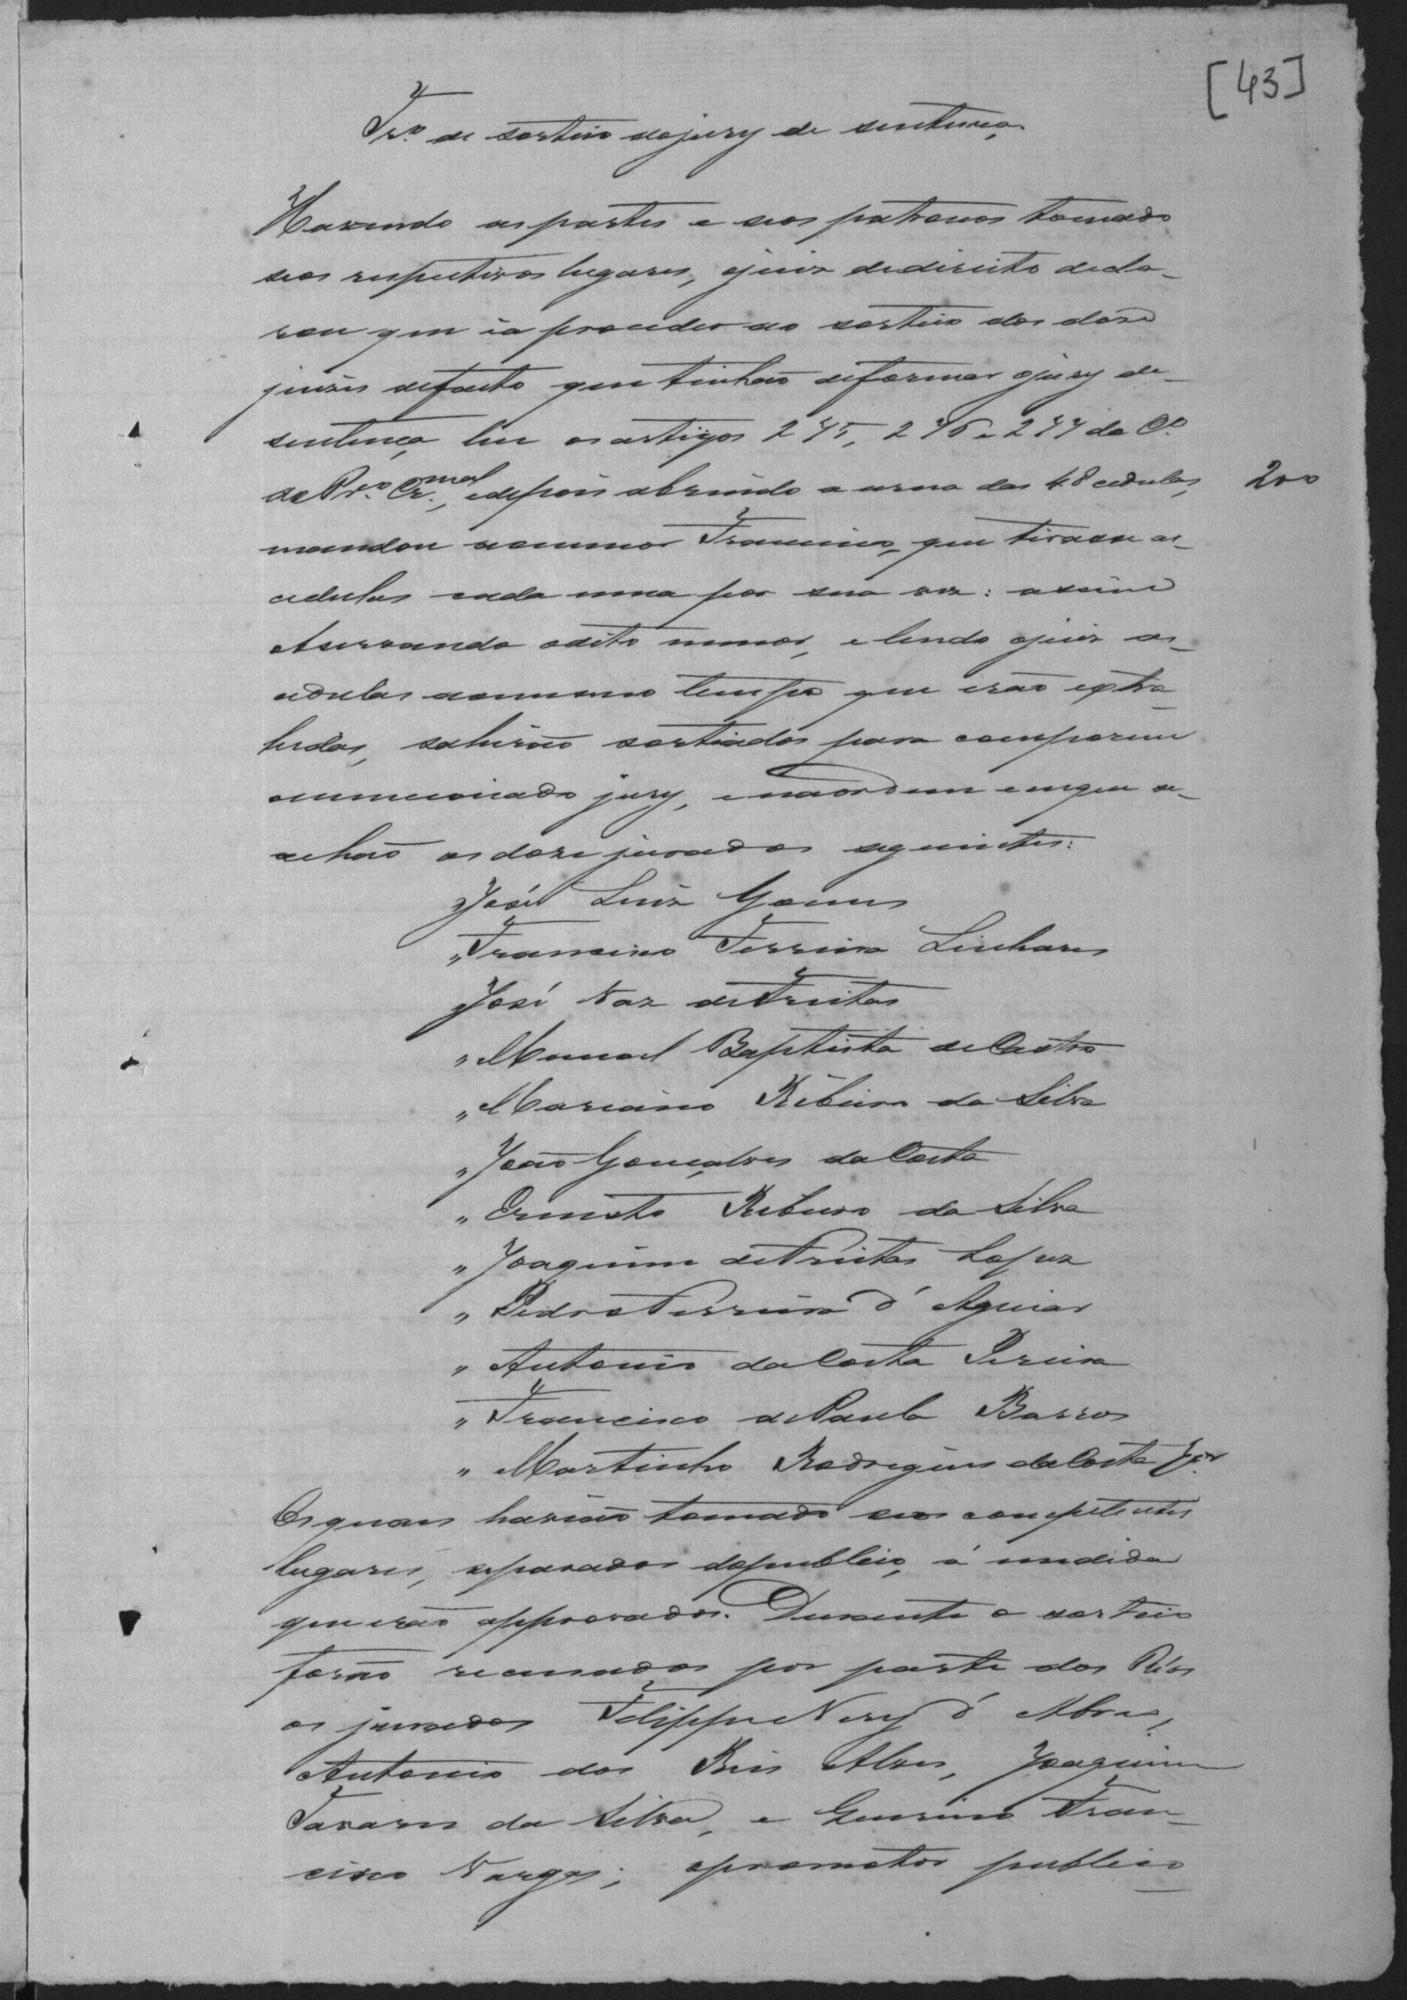 [43]
Tr.o de sorteio do jury de sentença
Havendo as partes e seos patronos tomado
seos respectivos lugares, o juiz de direito decla-
rou que ia proceder ao sorteio dos doze
juizes de facto que tinhão de formar o jury de
sentença, leu os artigos 275, 276 e 277 do C.o
do Pr.o Cr.mal, e depois abrindo a urna das 48 cedulas, 200
mandou ao menor Francisco, que tirasse as
cedulas cada uma por sua vez: assim
observando o dito menor, e lendo o juiz as
cedulas ao mesmo tempo que erão extra-
hidas, sahirão sorteados para comporem
o mencionado jury, e na ordem em que se
achão os doze jurados seguintes:
José Luiz Gomes
" Francisco Ferreira Linhares
José Vaz de Freitas
" Manoel Baptista de Castro
" Marciano Ribeiro da Silva
" João Gonçalves da Costa
" Ernesto Ribeiro da Silva
" Joaquim de Freitas Lopes
" Pedro Ferreira d' Aguiar
" Antonio da Costa Pereira
" Francisco de Paula Barros
" Martinho Rodrigues da Costa J.or
Os quaes havião tomado seos competentes
lugares, separados do publico, á medida
que erão approvados. Durante o sorteio
forão recusados por parte dos Réos
os jurados Felippe Nery d' Abreu,
Antonio dos Reis Alves, Joaquim
Tavares da Silva, e Guerino Fran-
cisco Vargas; o promotor publico